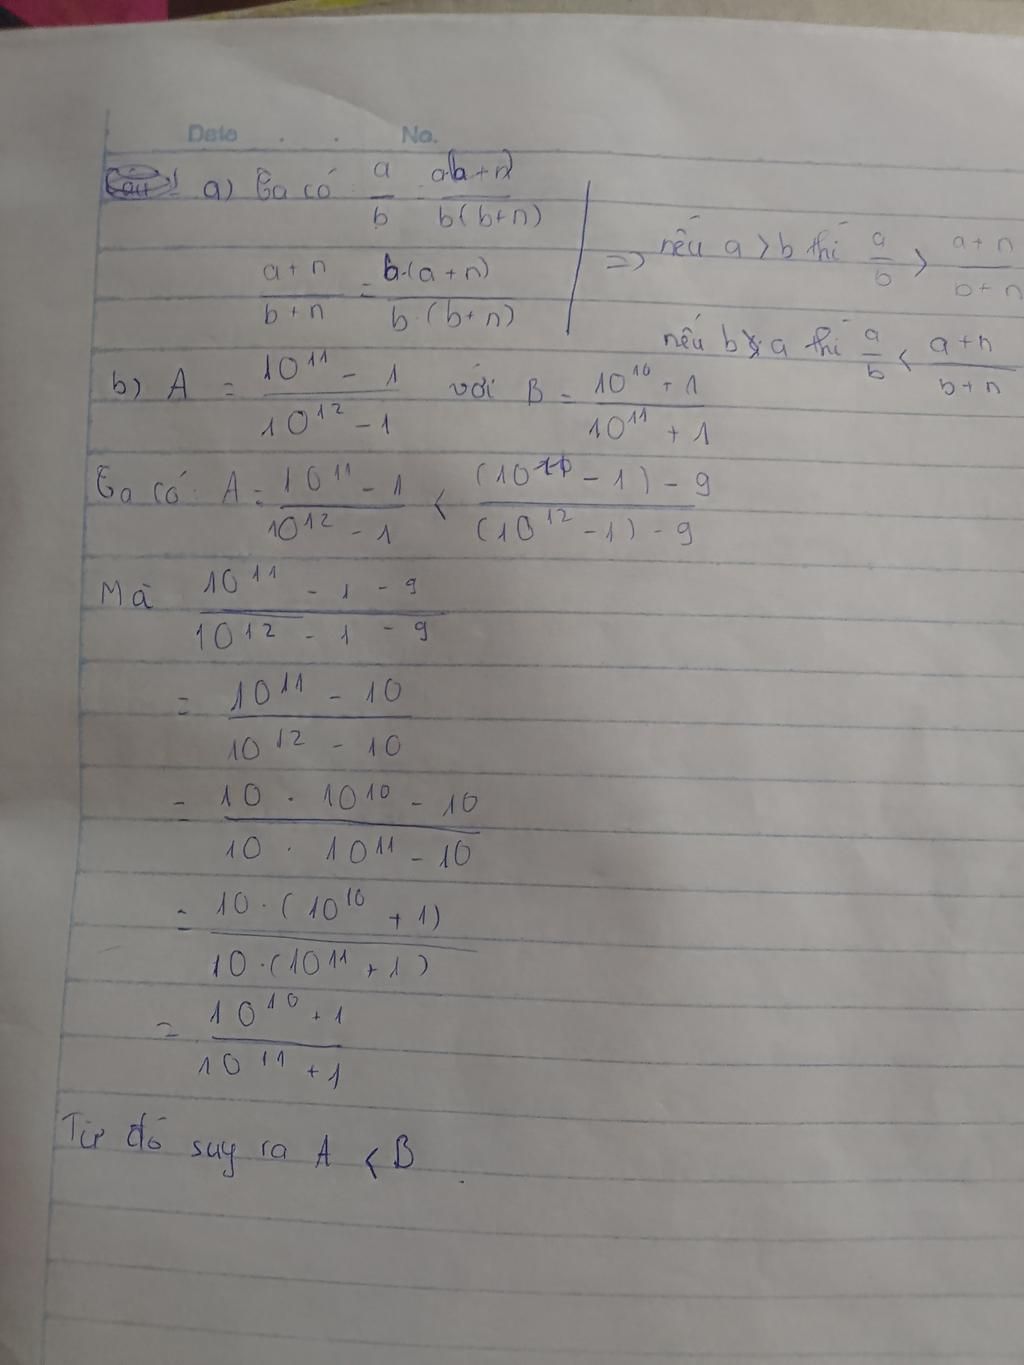 Date . . No.
Câu 1 a) Ta có a/b = a(b+n)/b(b+n)
(a+n)/(b+n) = b.(a+n)/b.(b+n)
=> nếu a > b thì a/b > (a+n)/(b+n)
nếu b > a thì a/b < (a+n)/(b+n)
b) A = (10^11 - 1)/(10^12 - 1) với B = (10^10 + 1)/(10^11 + 1)
Ta có: A = (10^11 - 1)/(10^12 - 1) < ((10^11 - 1) - 9)/((10^12 - 1) - 9)
Mà (10^11 - 1 - 9)/(10^12 - 1 - 9)
= (10^11 - 10)/(10^12 - 10)
= (10 . 10^10 - 10)/(10 . 10^11 - 10)
= 10.(10^10 + 1)/10.(10^11 + 1)
= (10^10 + 1)/(10^11 + 1)
Từ đó suy ra A < B .